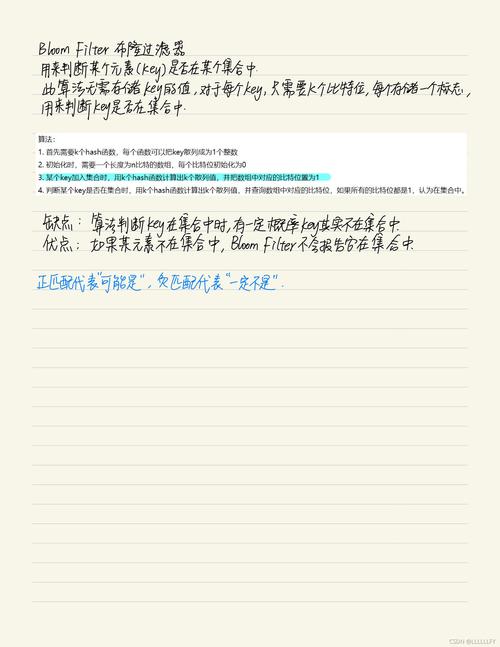 Bloom Filter 布隆过滤器
用来判断某个元素(key)是否在某个集合中.
此算法无需存储key的值,对于每个key,只需要k个比特位,每个存储一个标志,
用来判断key是否在集合中.
算法：
1. 首先需要k个hash函数，每个函数可以把key散列成为1个整数
2. 初始化时，需要一个长度为n比特的数组，每个比特位初始化为0
3. 某个key加入集合时，用k个hash函数计算出k个散列值，并把数组中对应的比特位置为1
4. 判断某个key是否在集合时，用k个hash函数计算出k个散列值，并查询数组中对应的比特位，如果所有的比特位都是1，认为在集合中。
缺点：算法判断key在集合中时,有一定概率key其实不在集合中.
优点：如果某元素不在集合中,Bloom Filter不会报告它在集合中.
正匹配代表"可能是",负匹配代表"一定不是".
CSDN @LLLLLLFY